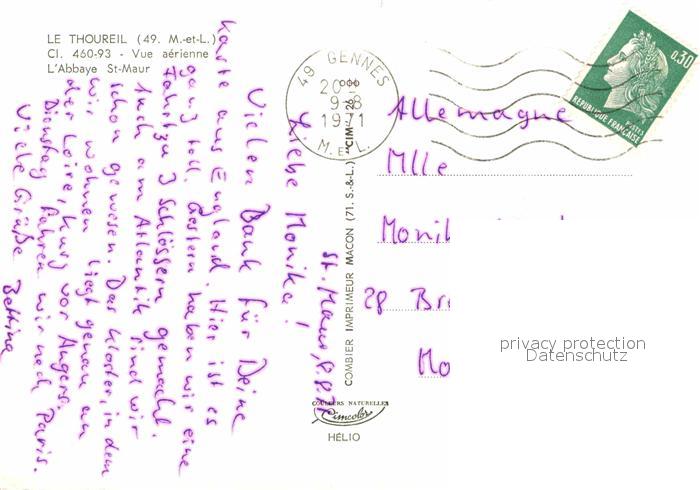 LE THOUREIL (49. M.-et-L.)
Cl. 460-93 - Vue aérienne
L'Abbaye St-Maur
St. Maur, 8.8.71
Liebe Monika!
Vielen Dank für Deine
Karte aus England. Hier ist es
ganz toll. Gestern haben wir eine
Fahrt zu 3 Schlössern gemacht.
Auch am Atlantik sind wir
schon gewesen. Das Kloster, in dem
wir wohnen liegt genau an
der Loire, kurz vor Angers.
Dienstag fahren wir nach Paris.
Viele Grüße
Bettina
COMBIER IMPRIMEUR MACON (71. S.-&-L.) "CIM"
COULEURS NATURELLES
Cimcolor
HÉLIO
49 GENNES
20
9-8
1971
M. et L.
0,30
POSTES
REPUBLIQUE FRANÇAISE
Allemagne
Mlle
Moni
28 Br
Mo
privacy protection
Datenschutz